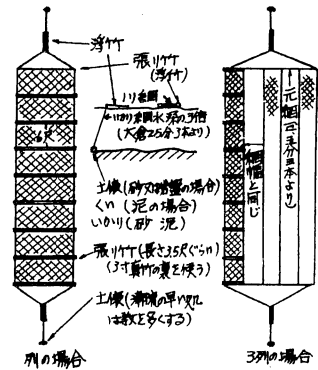 浮竹
張り竹
(浮竹)
いかり綱水深の3倍
(大倉25分3本より)
6尺
土俵(砂又は岩盤の場合)
くい(泥の場合)
いかり(砂 泥)
張り竹(長さ3.5尺ぐらい)
(3寸真竹の裏を使う)
土俵(潮流の早い処
は数を多くする)
列の場合
網幅と同じ
3列の場合